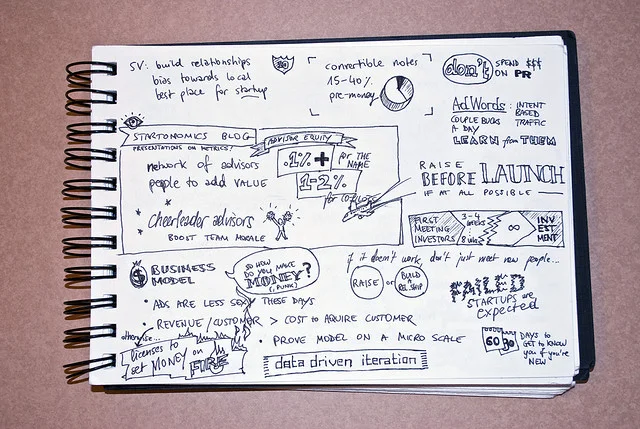 SV: build relationships
bias towards local
best place for startup
convertible notes
15-40%
pre-money
don't
SPEND $$$
ON PR
AdWords: INTENT
BASED
TRAFFIC
COUPLE BUCKS
A DAY
LEARN from THEM
STARTONOMICS BLOG
PRESENTATIONS ON METRICS!
network of advisors
people to add VALUE
* cheerleader advisors
BOOST TEAM MORALE
ADVISOR EQUITY
.1% +
for THE
NAME
1-2%
RAISE
BEFORE LAUNCH
IF AT ALL POSSIBLE
FIRST
MEETING
INVESTORS
3-4
WEEKS
∞
INV
EST
MENT
$ BUSINESS
MODEL
SO HOW
DO YOU MAKE
MONEY?
(, PUNK)
• ADS ARE LESS SEXY THESE DAYS
• REVENUE/CUSTOMER > COST TO AQUIRE CUSTOMER
• PROVE MODEL ON A MICRO SCALE
data driven iteration
otherwise...
licenses to
set MONEY on
FIRE
if it doesn't work, don't just meet new people...
RAISE or BUILD
A REL.SHIP
FAILED
STARTUPS are
expected
60 90
DAYS to
GET to KNOW
you if you're
NEW